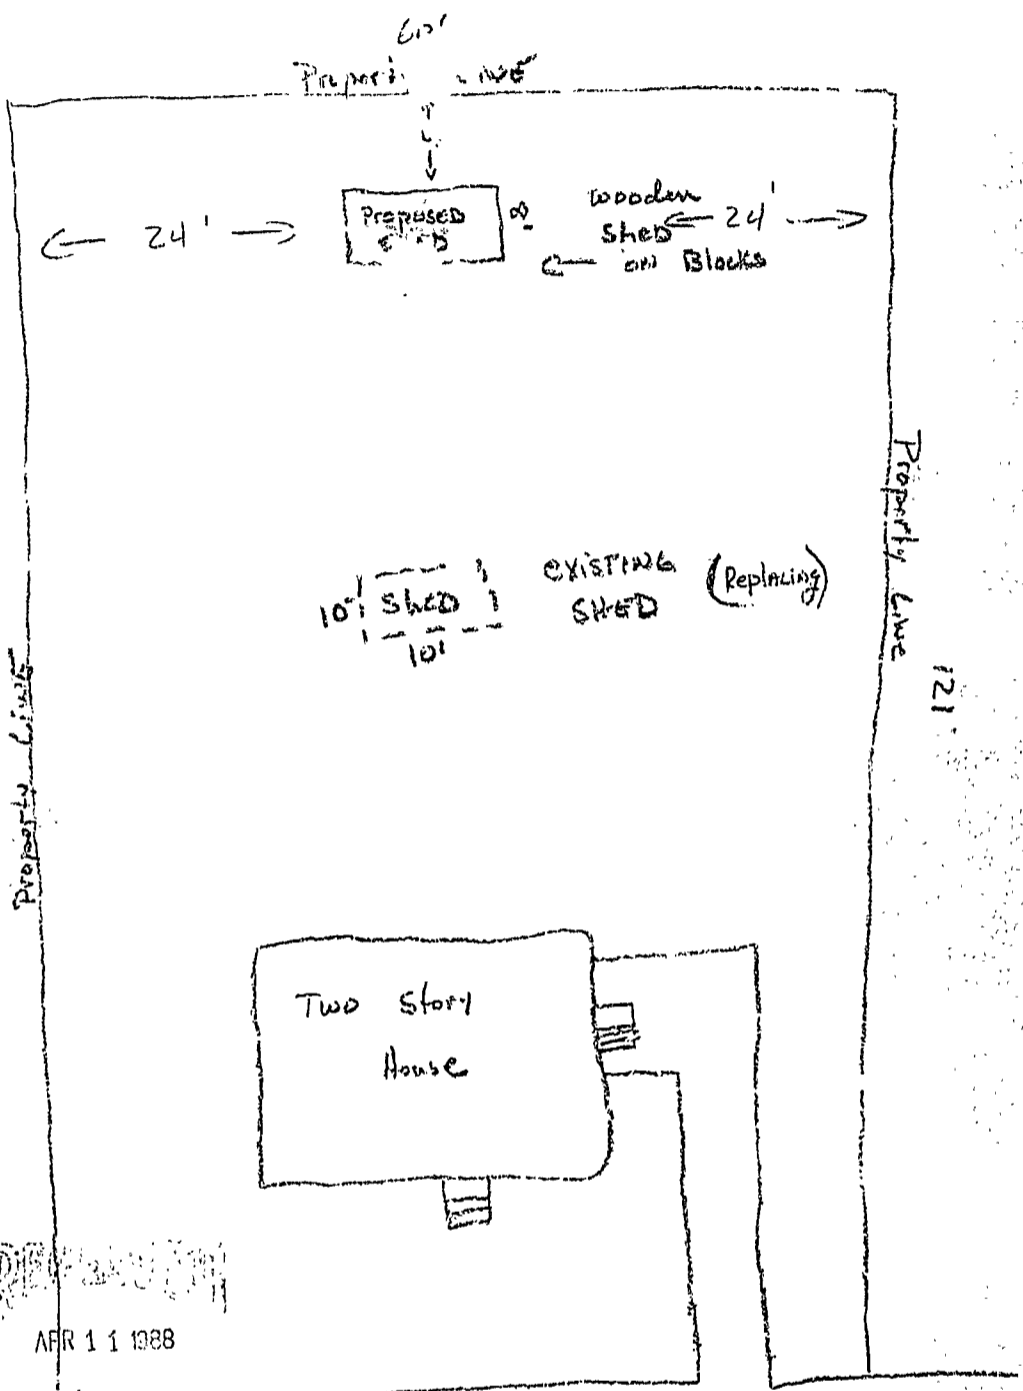 60'
Property LINE
← 24' →
Proposed
SHED
8'
wooden
Shed
on Blocks
← 24' →
Property Line
121'
10'
ShED
10'
EXISTING
SHED
(Replacing)
Property LINE
Two Story
House
APR 11 1988